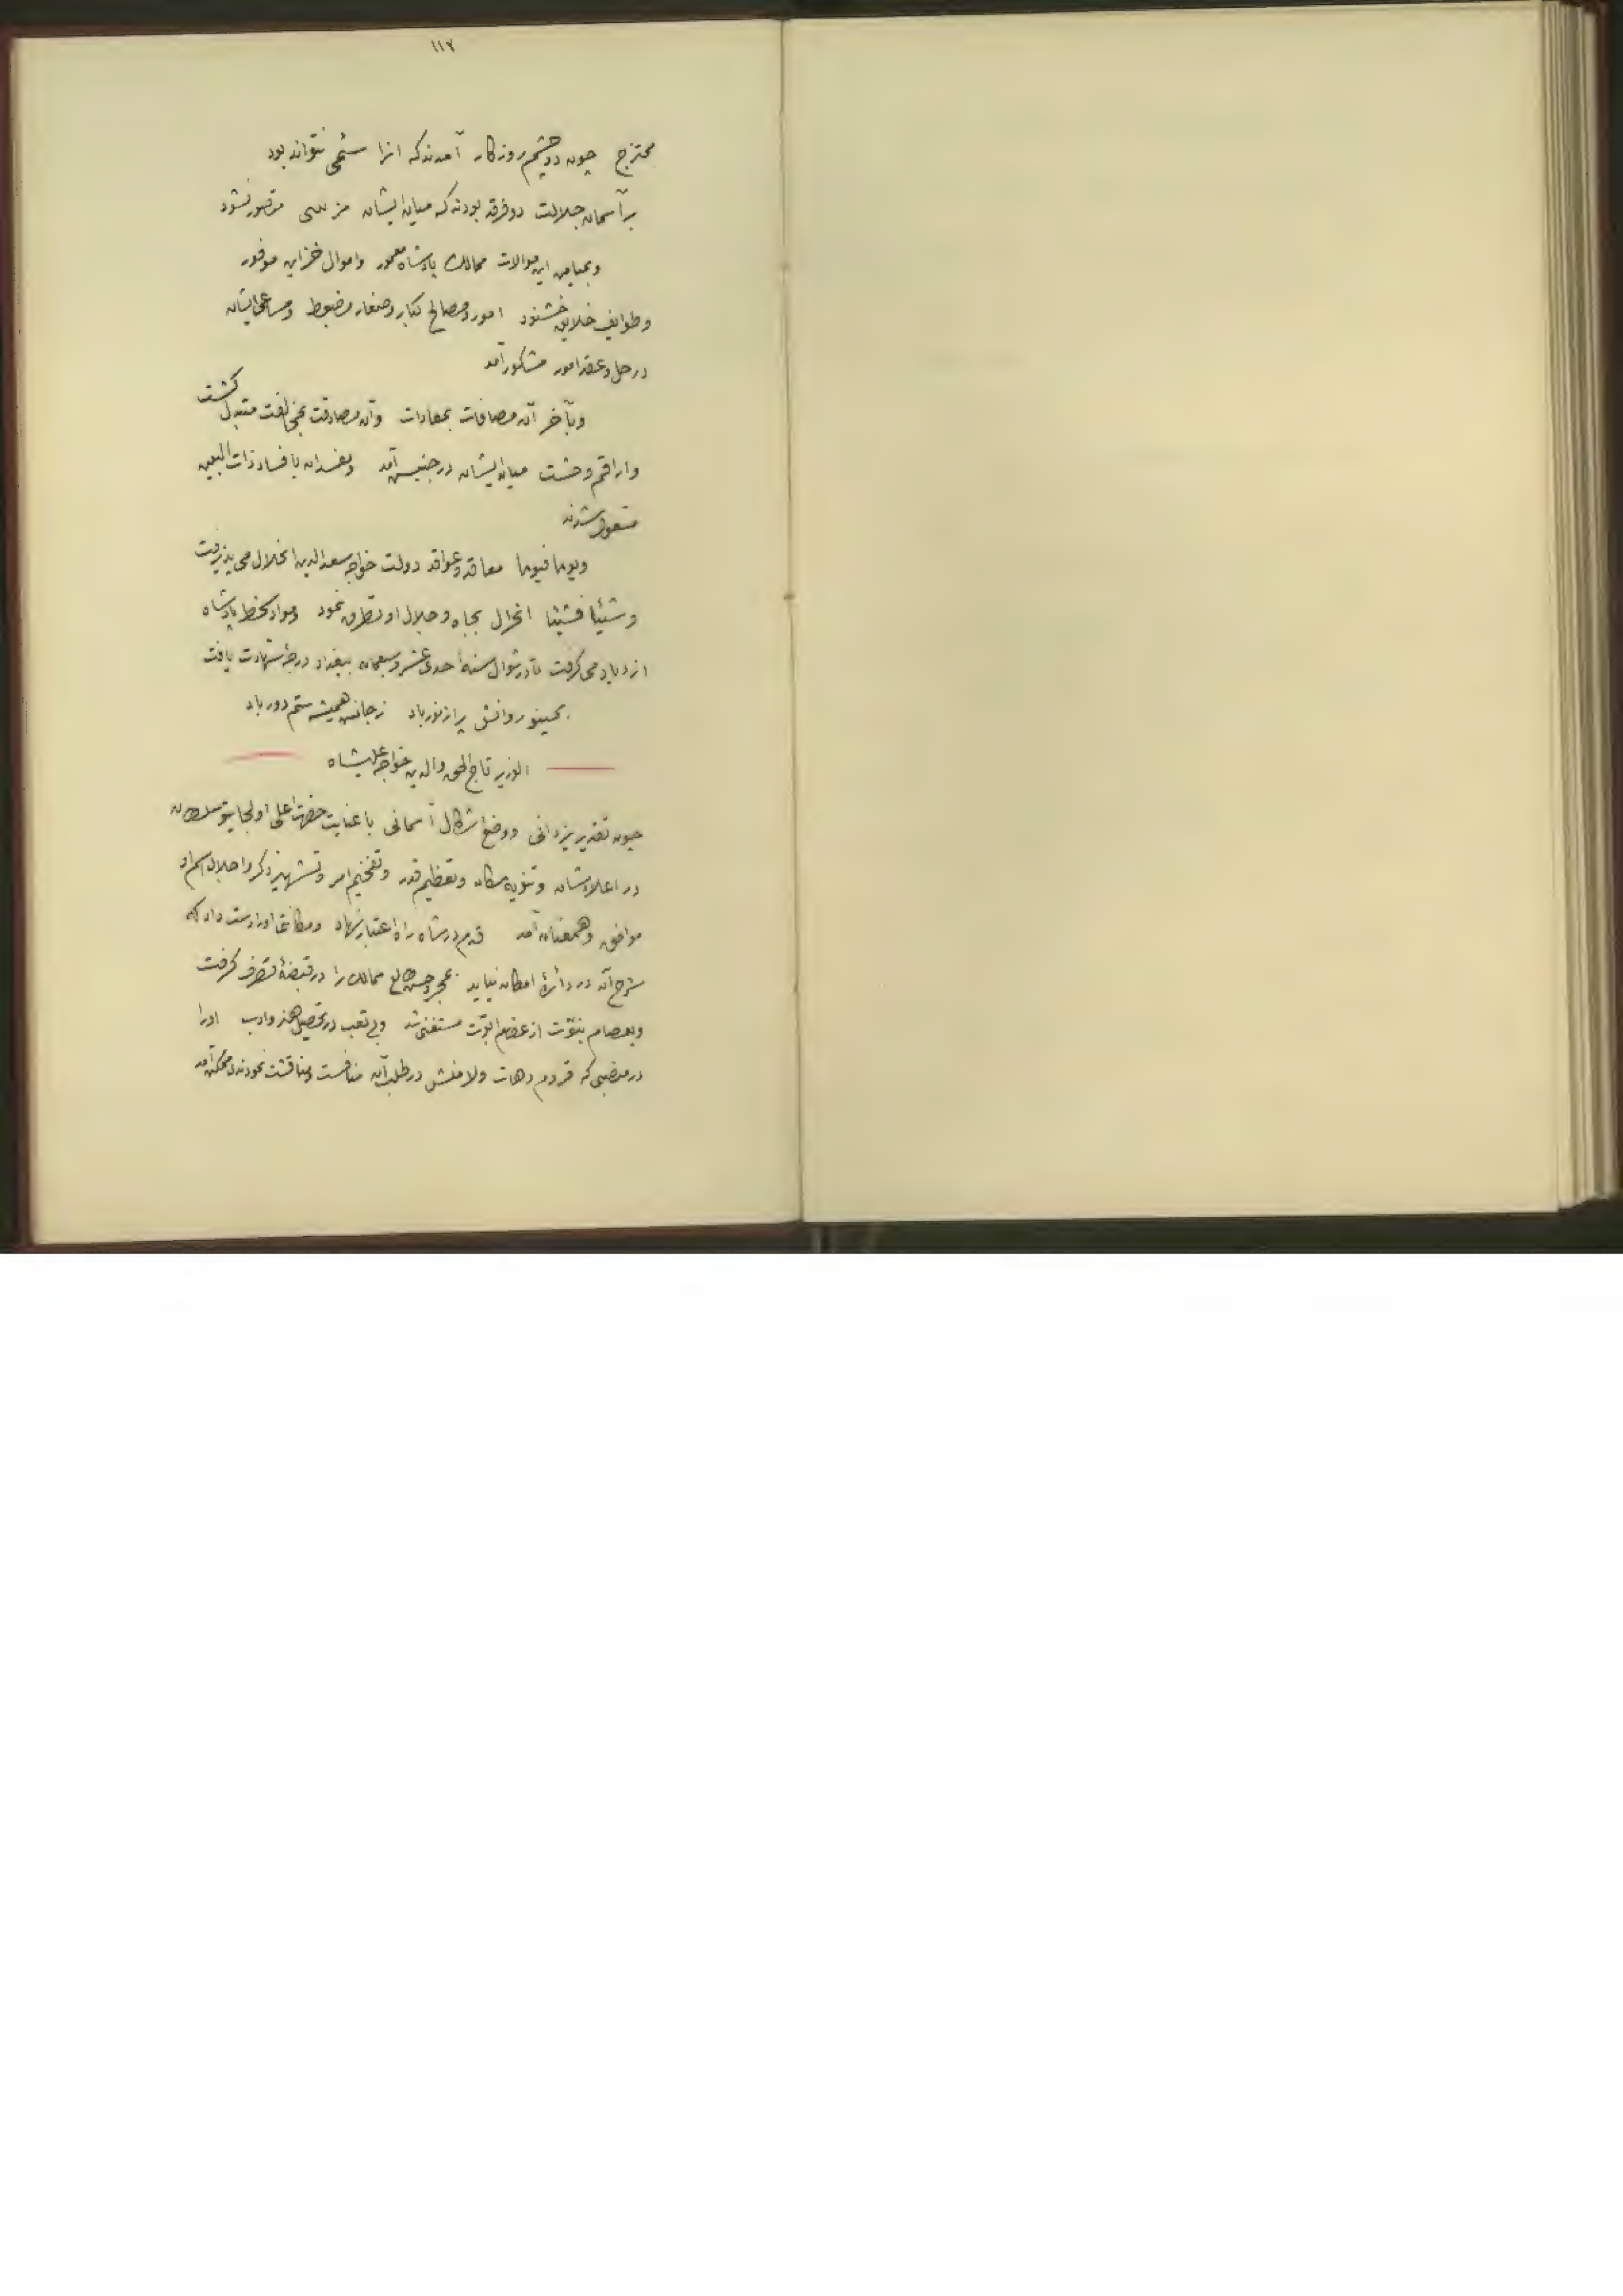 ۱۱۷
ممتزج چون دو چشم روزگار آمدند که انرا سیمی نتواند بود
بر آسمان جلالت دو فرقد بودند که میان ایشان متصور نشود
و بمیامن این موالات ممالک پادشاه معمور و اموال خزاین موفور
و طوایف خلایق خشنود امور و مصالح کبار و صغار مضبوط و مساعی ایشان
در حل و عقد امور مشکور آمد
و بآخر آن مصافات بمعادات و آن مصادقت بمخالفت متبدل گشت
و اراقم وحشت میان ایشان در جنبش آمد و مفسدان بافساد ذات البین
مشعوف شدند
و یوما فیوما معاقد و عواقد دولت خواجه سعد الدین انحلال می پذیرفت
و شیئا فشیئا انخزال بجاه و جلال او تطرق نمود و مواد سخط پادشاه
ازدیاد می گرفت تا در شوال سنة احدی عشر و سبعمائه ببغداد درجهٔ شهادت یافت
بمینو روانش پر از نور باد ز جانش همیشه ستم دور باد
الوزیر تاج الحق والدین خواجه علیشاه
چون تقدیر یزدانی و وضع اشکال آسمانی با عنایت حضرت اعلی اولجایتو سلطان
در اعلاء شان و تنویه مکان و تعظیم قدر و تفخیم امر و تشهیر ذکر و اجلال اسم او
موافق و همعنان آمد قدم در شاه راه اعتبار نهاد و مکانتی اورا دست داد که
شرح آن در دائرهٔ امکان نیاید بمجرد حسن طالع ممالک را در قبضهٔ تصرف گرفت
و بعصام بنوّت از عظام ابوّت مستغنی شد و بی تعب در تحصیل هنر و ادب اورا
در منصبی که قروم دهات ولا فلش در طلب آن منافست و مناقشت نمودند متمکن آمد